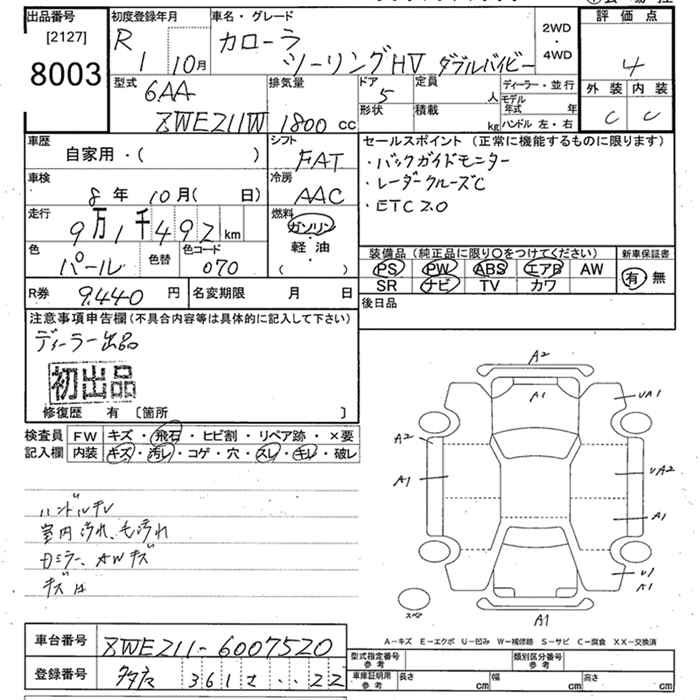 出品番号 [2127] 8003
初度登録年月 R 1 10月
車名・グレード カローラ ツーリングHV ダブルバイビー
2WD ・ 4WD
評価点 4
外装 内装
C C
型式 6AA ZWE211W
排気量 1800 cc
ドア 5
形状
定員 人
積載 kg
ディーラー・並行
モデル年式 年
ハンドル 左・右
車歴 自家用・( )
シフト FAT
車検 8年 10月( 日)
冷房 AAC
走行 9万1千492 km
燃料 ガソリン 軽・油 ( )
色 パール 色替 色コード 070
セールスポイント(正常に機能するものに限ります)
・バックガイドモニター
・レーダークルーズC
・ETC2.0
装備品(純正品に限り〇をつけてください) 新車保証書
PS PW ABS エアB AW 有・無
SR ナビ TV カワ
R券 9,440 円 名変期限 月 日
後日品
注意事項申告欄(不具合内容等は具体的に記入して下さい)
ディーラー出品
初出品
修復歴 有 〔箇所 〕
検査員記入欄
FW キズ・飛石・ヒビ割・リペア跡・×要
内装 キズ・汚レ・コゲ・穴・スレ・キレ・破レ
ハンドルキレ
室内汚れ、毛汚れ
Dミラー、AWキズ
A2
A1
UA1
A2
A1
UA2
A1
U1
A1
スペア
A1
A-キズ E-エクボ U-凹み W-補修跡 S-サビ C-腐食 XX-交換済
車台番号 ZWE211-6007520
登録番号 361 22
型式指定番号 参考 類別区分番号 参考
車庫証明用 参考 長さ cm 幅 cm 高さ cm